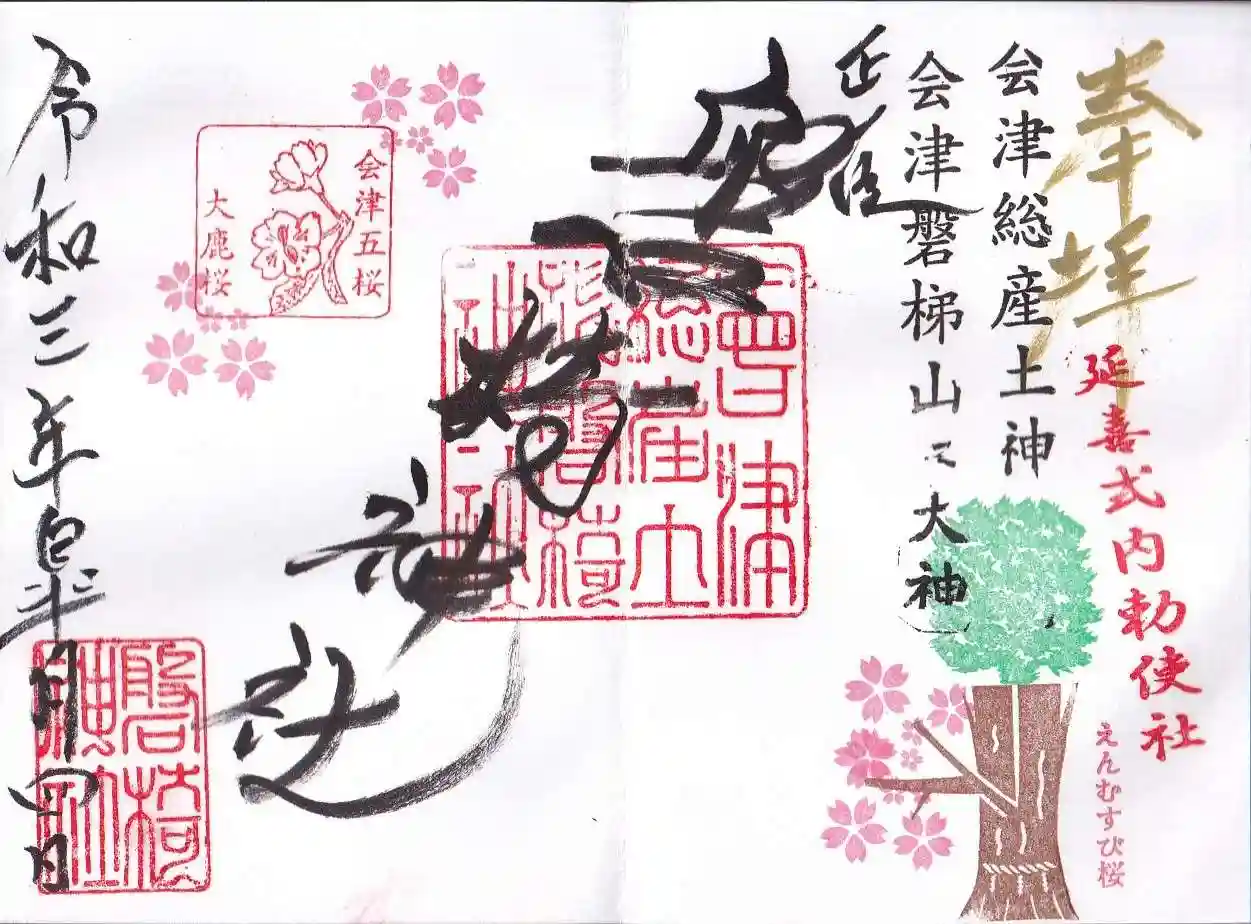 奉拝
延喜式内勅使社
えんむすび桜
会津総産土神
会津磐梯山之大神
正一位
磐椅神社
會津
総産土
会津五桜
大鹿桜
令和三年皐月四日
磐椅
神社